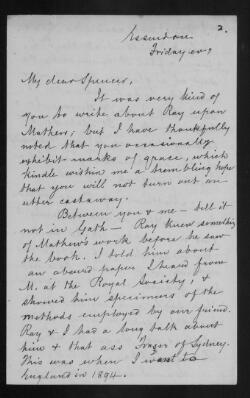 2.
Essendon
Friday evg
My dear Spencer,
It was very kind of
you to write about Ray upon
Mathews; but I have thankfully
noted that you occasionally
exhibit marks of grace, which
kindle within me a trembling hope
that you will not turn out an
utter castaway.
Between you & me – tell it
not in Gath – Ray knew something
of Mathews work before he saw
the book. I told him about
an absurd paper I heard from
M. at the Royal Society, &
showed him specimens of the
methods employed by our friend.
Ray & I had a long talk about
him & that ass Frazer of Sydney.
This was when I went to
England in 1894.